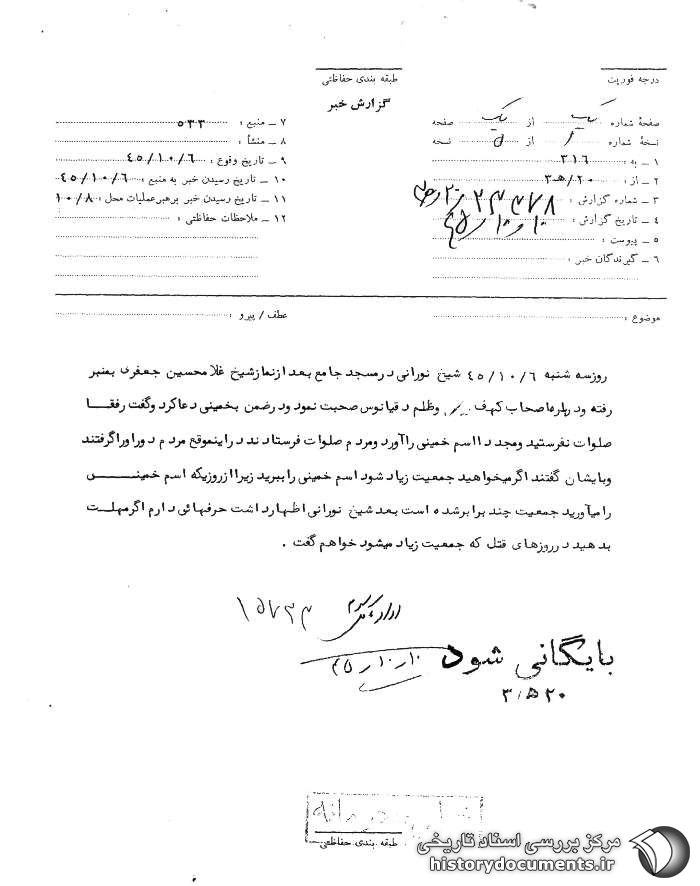 درجه فوریت
طبقه بندی حفاظتی
گزارش خبر
صفحهٔ شماره یک از یک صفحه
نسخهٔ شماره از نسخه
۱ - به : ۳۱۶
۲ - از : ۲۰/ه‍۳
۳ - شماره گزارش :
۴ - تاریخ گزارش : ۴۵/۱۰/۱۰
۵ - پیوست :
۶ - گیرندگان خبر :
۷ - منبع : ۵۳۳
۸ - منشأ :
۹ - تاریخ وقوع : ۴۵/۱۰/۶
۱۰ - تاریخ رسیدن خبر به منبع : ۴۵/۱۰/۶
۱۱ - تاریخ رسیدن خبر برهبرعملیات محل : ۱۰/۸
۱۲ - ملاحظات حفاظتی :
موضوع :
عطف / پیرو :
روزسه شنبه ۴۵/۱۰/۶ شیخ نورانی درمسجد جامع بعد ازنمازشیخ غلامحسین جعفری بمنبر
رفته ودرباره اصحاب کهف وظلم دقیانوس صحبت نمود ودرضمن بخمینی دعاکرد وگفت رفقا
صلوات نفرستید ومجدداً اسم خمینی راآورد ومردم صلوات فرستادند دراینموقع مردم دوراوراگرفتند
وبایشان گفتند اگرمیخواهید جمعیت زیاد شود اسم خمینی راببرید زیرا ازروزیکه اسم خمینی
رامیآورید جمعیت چند برابرشده است بعد شیخ نورانی اظهارداشت حرفهائی دارم اگرمهلت
بدهید درروزهای قتل که جمعیت زیاد میشود خواهم گفت .
۱۵۷۳۳
بایگانی شود
۴۵/۱۰/۱۰
۲۰ ه‍ ۳
طبقه بندی حفاظتی
مرکز بررسی اسناد تاریخی
historydocuments.ir